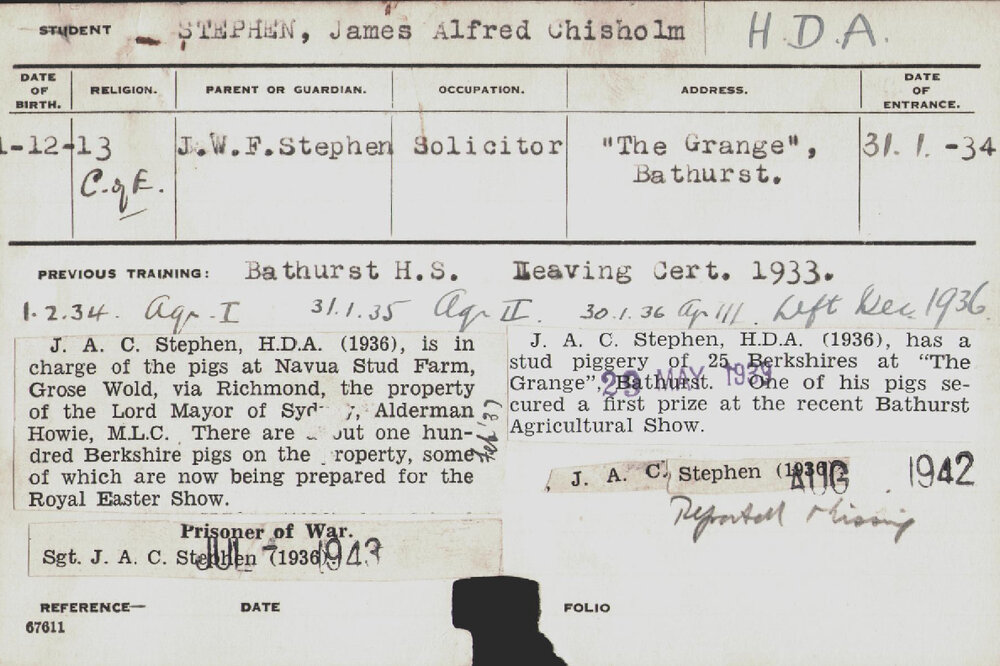 STUDENT STEPHEN, James Alfred Chisholm H.D.A.
DATE OF BIRTH. RELIGION. PARENT OR GUARDIAN. OCCUPATION. ADDRESS. DATE OF ENTRANCE.
1-12-13 J.W.F.Stephen Solicitor "The Grange", 31. 1. -34
C. of E. Bathurst.
PREVIOUS TRAINING: Bathurst H.S. Leaving Cert. 1933.
1.2.34. Agr. I 31.1.35 Agr II. 30.1.36 Agr III. Left Dec 1936.
J. A. C. Stephen, H.D.A. (1936), is in
charge of the pigs at Navua Stud Farm,
Grose Wold, via Richmond, the property
of the Lord Mayor of Syd y, Alderman
Howie, M.L.C. There are out one hun-
dred Berkshire pigs on the roperty, some
of which are now being prepared for the
Royal Easter Show.
Feb '37
J. A. C. Stephen, H.D.A. (1936), has a
stud piggery of 25 Berkshires at "The
Grange", Bathurst. One of his pigs se-
cured a first prize at the recent Bathurst
Agricultural Show.
29 MAY 1939
J. A. C. Stephen (1936)
AUG 1942
Reported Missing
Prisoner of War.
Sgt. J. A. C. Stephen (1936)
JUL - 1943
REFERENCE— DATE FOLIO
67611